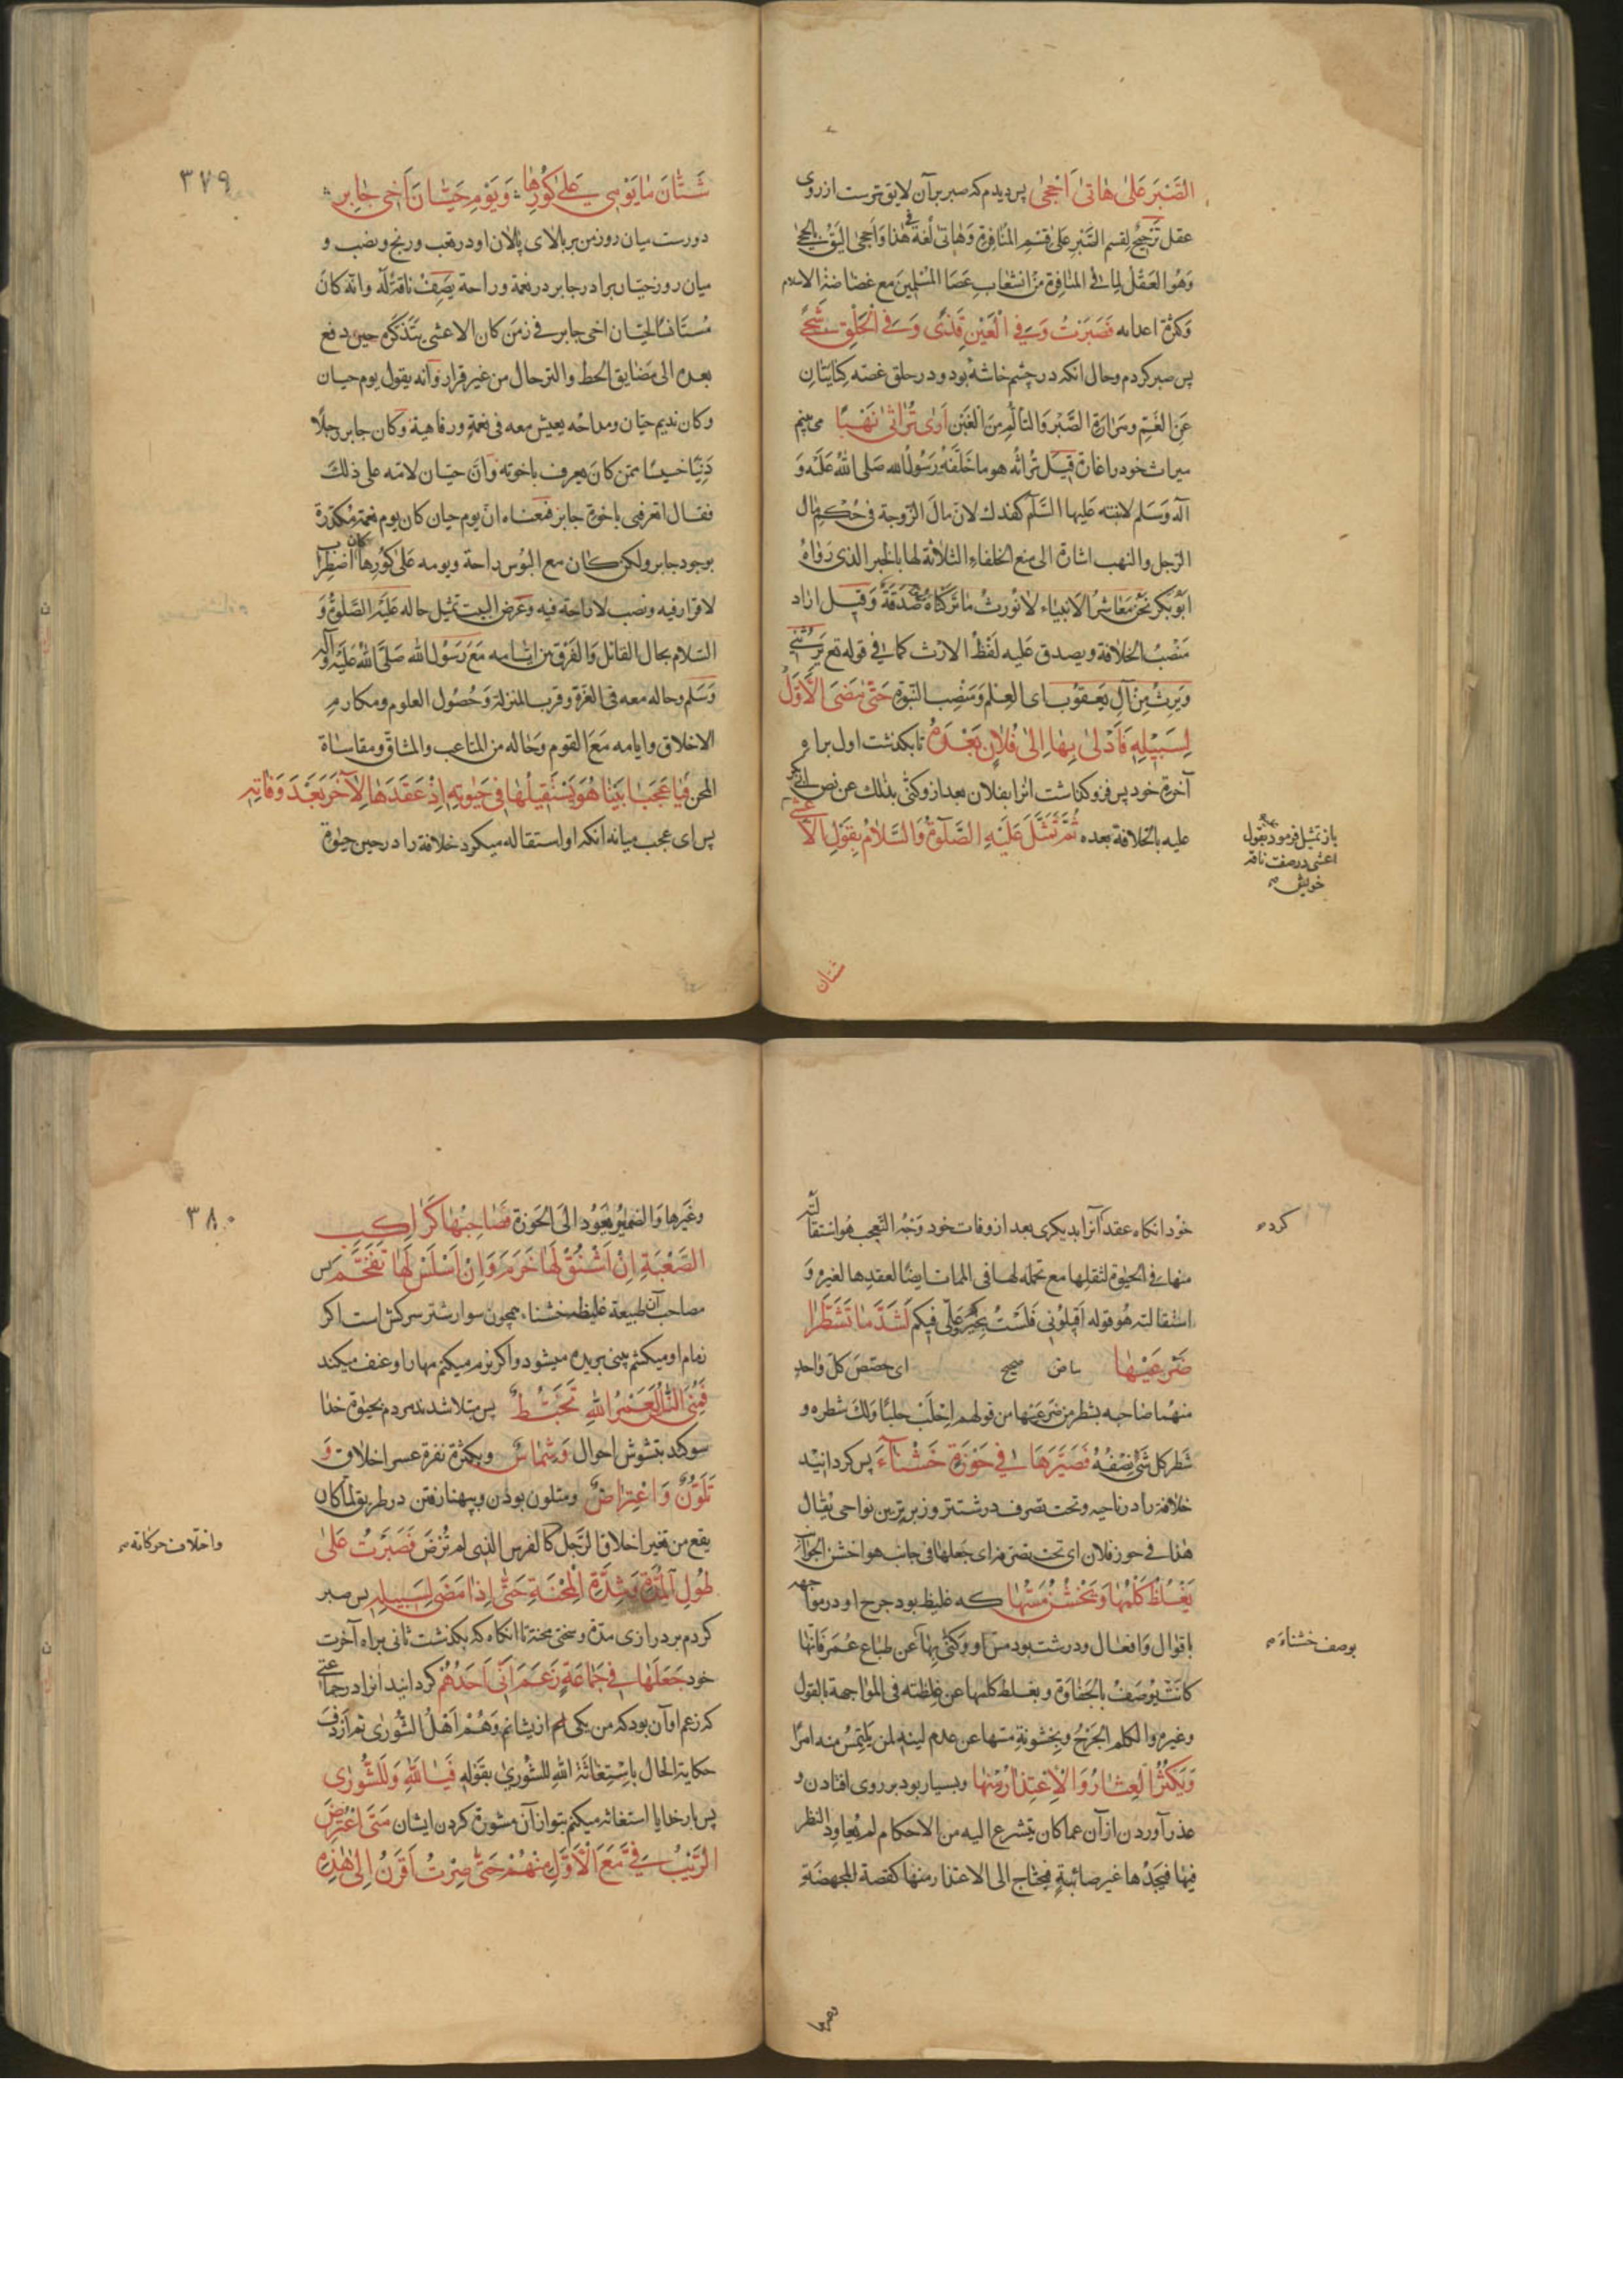 الصَّبْرَ عَلىٰ هٰاتىٰ اَحْجىٰ پس ديدم كه صبر بر آن لايق ترست از روى
عقل تَرجيحٌ لِقسم الصَّبْرِ عَلىٰ قِسْمِ المُنافِرةِ وَهٰاتىٰ لُغَة فى هٰذا وَاَحجىٰ اَليَق بالحِجىٰ
وَهُوَ العَقْل لِما فى المنافِرة مِنْ انشعابِ عَصَا المُسْلِمينَ مَع غضاضة الاسلام
وَكثرة اعدائه فَصَبَرْتُ وَفى الْعَيْنِ قَذىً وَفى الْحَلْقِ شَجىً
پس صبر كردم و حال انكه در چشم خاشه بود و در حلق غصّه كِنايَتانِ
عَنِ الغَمِّ ومَرارَةِ الصَّبْر وَالتألُّمِ مِنَ الْغَبْن اَرىٰ تُراثى نَهْبًا مى بينم
ميراث خود را غارة قيل تُراثُه هو ما خَلَّفَهُ رَسُولُ الله صَلى اللهُ عَلَيْه وَ
آله وَسَلم لابنته عَليها السَّلٰم كفدك لانّ مالَ الزّوجة فى حُكم مٰال
الرّجل والنهب اشارة الى منع الخلفاء الثلاثة لها بالخبر الذى رَوٰاهُ
اَبُوبَكر نَحْنُ مَعٰاشِرُ الاَنبياء لا نُورثُ مٰا تَرَكناهُ صَدَقَةٌ وَقيل اراد
مَنْصَبُ الخلافة ويصدق عَليه لَفْظُ الارْث كما فى قوله تع يَرِثُنى
وَيَرِثُ مِنْ آلِ يَعقُوب اى العِلم وَمَنْصِب النّبوة حَتّىٰ مَضىَ الاَوَّلُ
لِسَبيٖلِهٖ فَاَدْلىٰ بِهٰا اِلىٰ فُلانٍ بَعْدَهُ تا بكذشت اول براه
آخرة خود پس فرو كذاشت انرا بفلان بعد از و كنّى بذلك عن نص ابى بكر
عليه بالخلافة بعده ثُمَّ تَمَثَّلَ عَلَيْهِ الصَّلوٰةُ وَالسَّلامُ بِقَوْلِ الاَعْشىٰ
باز تمثيل فرمود بقول
اعشى در صفت ناقه
خويش
شتان
٣٧٩
شَتّٰانَ مٰا يَوْمٖى عَلىٰ كُورِهٰا وَيَوْمُ حَيّٰانَ اَخى جٰابِرِ
دورست ميان روز من بر بالاى پالان او در تعب و رنج و نصب و
ميان روز حيّان برادر جابر در نعمة و راحة يصِفُ ناقة له وانّه كانَ
حيان اخى جابر فى زمن كان الاعشى يَتَذكّره حين دفع
بعده الى مَضايق الحط والترحال من غير قرار وَانّه يقول يوم حيان
وكان نديم حيّان ومداحه يعيش معه فى نعمةٍ ورفاهية وكان جابر رجلًا
دَنِيًّا خسيسًا ممّن كانَ يعرف باخوته وَانّ حيّان لامته على ذلكَ
فقال اتعرفنى باخوة جابر فمعناه انّ يوم حيان كان يوم نعمةٍ مُكدّرة
بوجود جابر ولكن كان مع البُوس راحة ويومه عَلىٰ كُورِهٰا كان اضطِرابا
لا قرار فيه ونصب لا راحة فيه وغرض البيت تمثيل حاله عَليْهِ الصَّلوٰةُ وَ
السّلام بحال القائل وَالفَرْق بين ايّامه مَعَ رَسُولِ الله صَلَّى اللهُ عَلَيْهِ وَآله
وَسَلم وحاله معه فى العَزّة وقرب المنزلة وَحُصُول العلوم ومكارم
الاخلاق وايامه مَعَ القَوم وَحٰاله من المتاعب والمشاقّ ومقاساة
المحن فَيٰا عَجَبًا بَيْنٰا هُوَ يَسْتَقيلُهٰا فى حَيٰوتِهٖ اِذْ عَقَدَهٰا لِآخَرَ بَعْدَ وَفٰاتِهٖ
پس اى عجب ميانه انكه او استقاله ميكرد خلافة را در حين حيٰوة
خود انكاه عقد كرده آنرا بديكرى بعد از وفات خود وَجْهُ التّعجب هُو استقالته
كرده
منها فى الحيٰوة لثقلها مع تحمله لها فى الممات ايضًا لعقدها لغيره وَ
استقالته هُو قوله اَقيلُونى فَلَسْتُ بِخَيْرٍ وعَلىٌّ فيكم لَشَدَّ مٰا تَشَطَّرٰا
ضَرْعَيْهٰا بياض صحيح اى خصّصَ كلّ واحدٍ
منهُما صٰاحبه بشطر من ضَرعَيها من قولهم اِحلَبْ حلبًا وَلكَ شطره و
شَطر كل شَىْءٍ نِصْفُهُ فَصَيَّرَهٰا فى حَوْزَةٍ خَشْنٰآءَ پس كردانيد
خلافة را در ناحيه و تحت تصرف درشتتر و زبرترين نواحى يُقال
هٰذا فى حوز فلان اى تحت تصرفه اى جَعلها فى جانب هو اخشن الجوانب
يَغْلُظُ كَلْمُهٰا وَيَخْشُنُ مَسُّهٰا كه غليظ بود جرح او در مواجهه
باقوال وَافعال و درشت بود مسّ او وَكَنّى بِهٰا عَن طباعِ عُمَرَ فَانّها
بوصف خشناء
كانَتْ يُوصَفُ بالجَفٰاوة وبغلظ كلمها عن غلظته فى المواجهة بالقول
وغيره والكلم الجَرْحُ وبخشونة مسّها عن عدم لينه لمن يَلتمِسُ منه امرًا
وَيَكْثُرُ الْعِثٰارُ وَالْاِعْتِذٰارُ مِنْهٰا و بسيار بود بر روى افتادن و
عذر آوردن از آن عما كان يتسرع اليه من الاحكام لم يُعاود النظر
فيها فيجدُها غير صائبةٍ فيحتاج الى الاعتذار منها كقصة المجهضَة
وغيرها
٣٨٠
وغَيرها وَالضميرُ يعُود الىٰ الحَوزة فَصٰاحِبُهٰا كَرٰاكِبِ
الصَّعْبَةِ اِنْ اَشْنَقَ لَهٰا خَرَمَ وَاِنْ اَسْلَسَ لَهٰا تَقَحَّمَ پس
مصاحب آن طبيعة غليظه خشناء همچون سوار شتر سركش است اكر
زمام او ميكشم بينى بريده ميشود و اكر نرم ميكنم مهار او عنف ميكند
فَمُنِىَ النّٰاسُ لَعَمْرُ اللهِ بِخَبْطٍ پس مبتلا شدند مردم بحيٰوة خدا
سوكند بتشوش احوال وَشِمٰاسٍ و بكثرة نفرة عسر اخلاق وَ
تَلَوُّنٍ وَاعْتِرٰاضٍ و متلون بودن و بپهنا رفتن در طريق لما كان
واختلاف حركاته
يقع من تغير اخلاق الرّجل كالفرس الذى لم تُرَض فَصَبَرْتُ عَلىٰ
طُولِ الْمُدَّةِ وَشِدَّةِ الْمِحْنَةِ حَتّىٰ اِذٰا مَضىٰ لِسَبيٖلِهٖ پس صبر
كردم بر درازى مدّة و سختى محنة تا انكاه كه بكذشت ثانى براه آخرت
خود جَعَلَهٰا فى جَمٰاعَةٍ زَعَمَ اَنّى اَحَدُهُمْ كردانيد انرا در جماعتى
كه زعم او آن بود كه من يكى ام از يشانم وَهُمْ اَهْلُ الشُّورٰى ثم اَردَفَ
حكاية الحال باِسْتِغٰاثَة اللهِ للشُّورىٰ بقَوْلِهٖ فَيٰا لَلّٰهِ وَلَلشُّورٰى
پس بار خدايا استغاثه ميكنم بتو از آن مشورة كردن ايشان مَتَى اعْتَرَضَ
الرَّيْبُ فِىَّ مَعَ الْاَوَّلِ مِنْهُمْ حَتّىٰ صِرْتُ اُقْرَنُ اِلىٰ هٰذِهِ